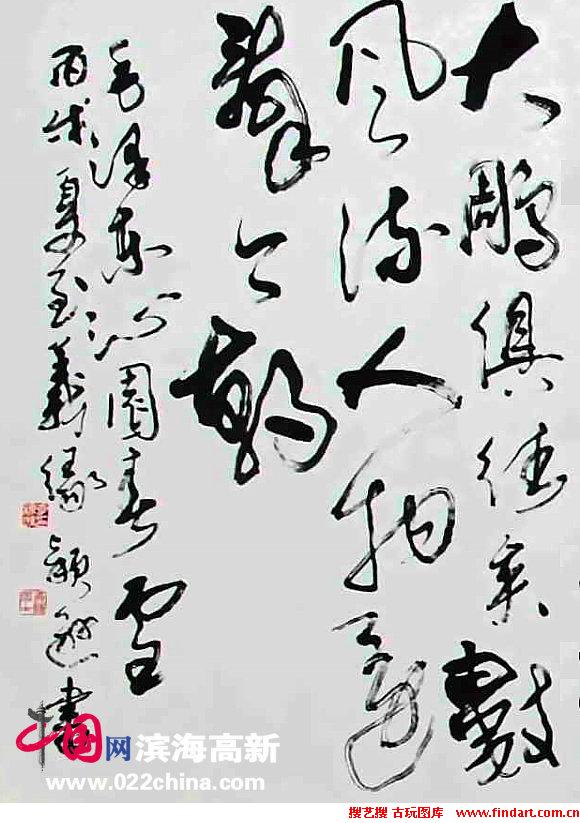 大鵰俱往矣數
风流人物還
看今朝
毛泽东沁園春雪
丙戌夏至 書
中国网 滨海高新
www.022china.com
搜艺搜 古玩图库 www.findart.com.cn